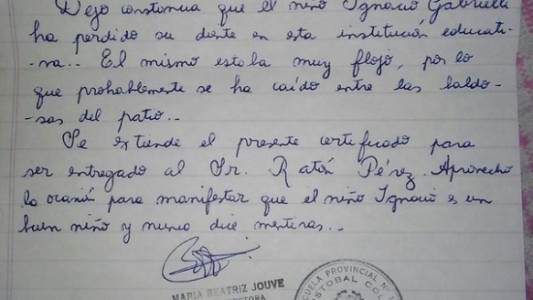 Dejo constancia que el niño Ignacio Gabrieli
ha perdido su diente en esta institución educati-
-va.. El mismo estaba muy flojo, por lo
que probablemente se ha caído entre las baldo-
-sas del patio..
Se extiende el presente certificado para
ser entregado al Sr. Ratón Pérez. Aprovecho
la ocasión para manifestar que el niño Ignacio es un
buen niño y nunca dice mentiras..
MARIA BEATRIZ JOUVE
ESCUELA PROVINCIAL N°